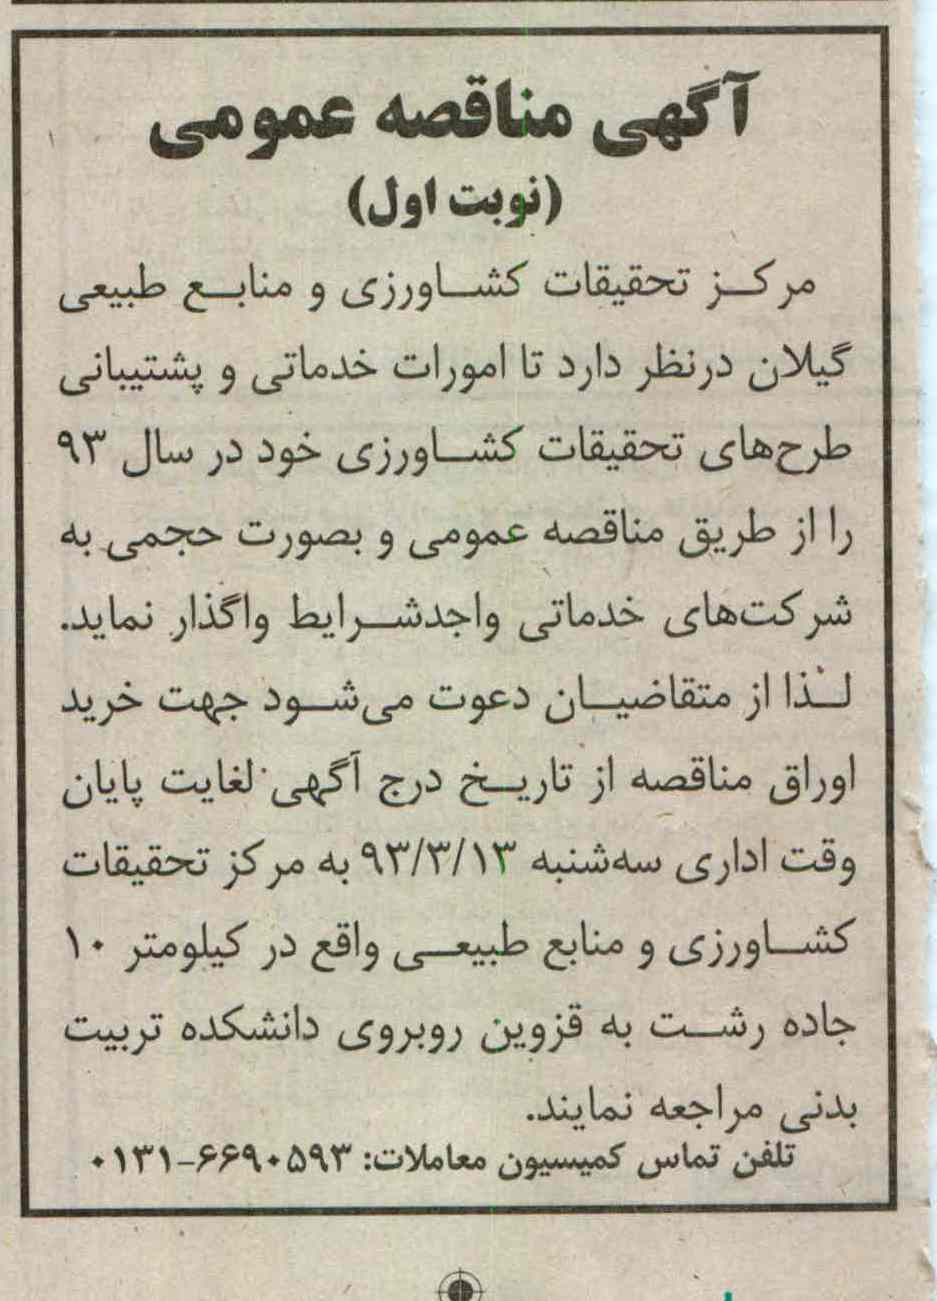 آگهی مناقصه عمومی
(نوبت اول)
مرکز تحقیقات کشاورزی و منابع طبیعی
گیلان درنظر دارد تا امورات خدماتی و پشتیبانی
طرح‌های تحقیقات کشاورزی خود در سال ۹۳
را از طریق مناقصه عمومی و بصورت حجمی به
شرکت‌های خدماتی واجدشرایط واگذار نماید.
لذا از متقاضیان دعوت می‌شود جهت خرید
اوراق مناقصه از تاریخ درج آگهی لغایت پایان
وقت اداری سه‌شنبه ۹۳/۳/۱۳ به مرکز تحقیقات
کشاورزی و منابع طبیعی واقع در کیلومتر ۱۰
جاده رشت به قزوین روبروی دانشکده تربیت
بدنی مراجعه نمایند.
تلفن تماس کمیسیون معاملات: ۶۶۹۰۵۹۳-۰۱۳۱